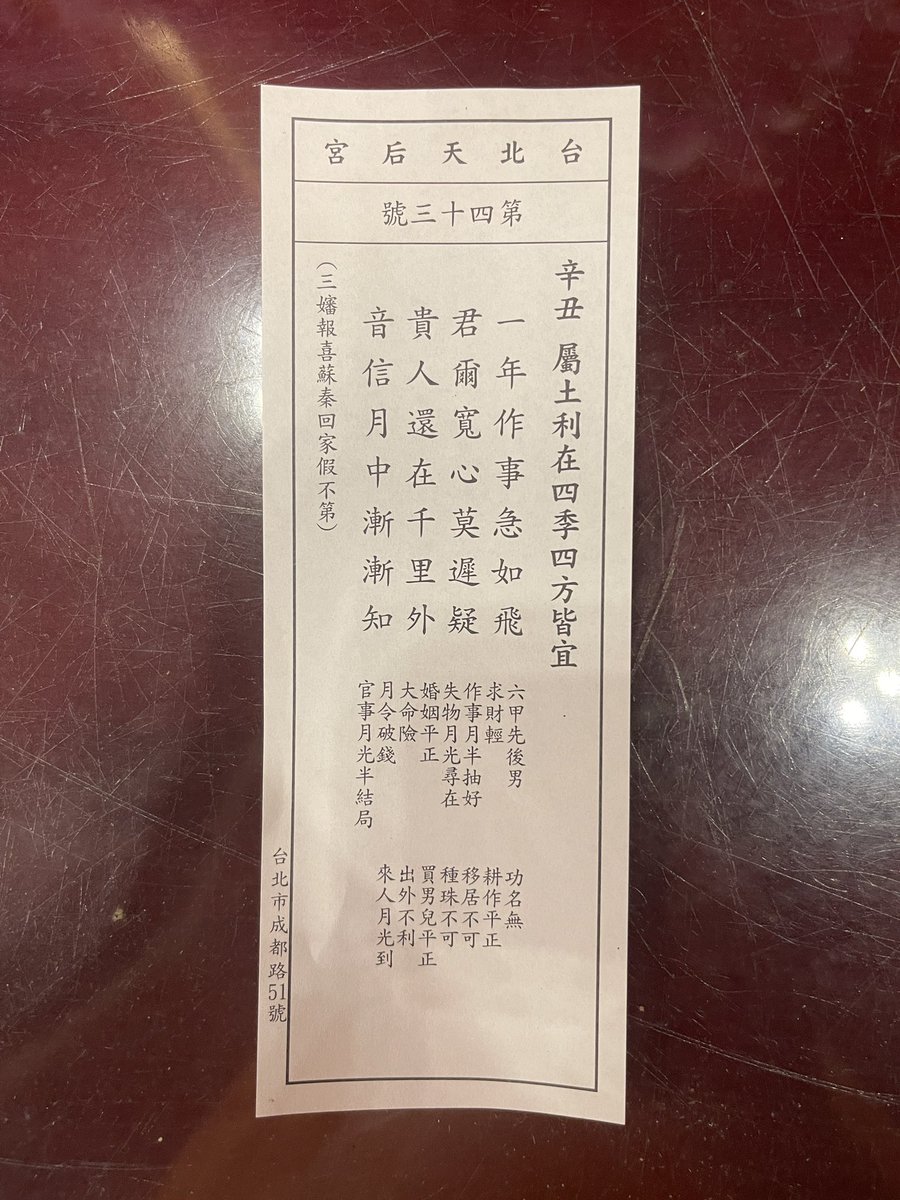 台北天后宮
第四十三號
辛丑 屬土利在四季四方皆宜
一年作事急如飛
君爾寬心莫遲疑
貴人還在千里外
音信月中漸漸知
(三嬸報喜蘇秦回家假不第)
六甲先後男
求財輕
作事月半抽好
失物月光尋在
婚姻平正
大命險
月令破錢
官事月光半結局
功名無
耕作平正
移居不可
種珠不可
買男兒平正
出外不利
來人月光到
台北市成都路51號